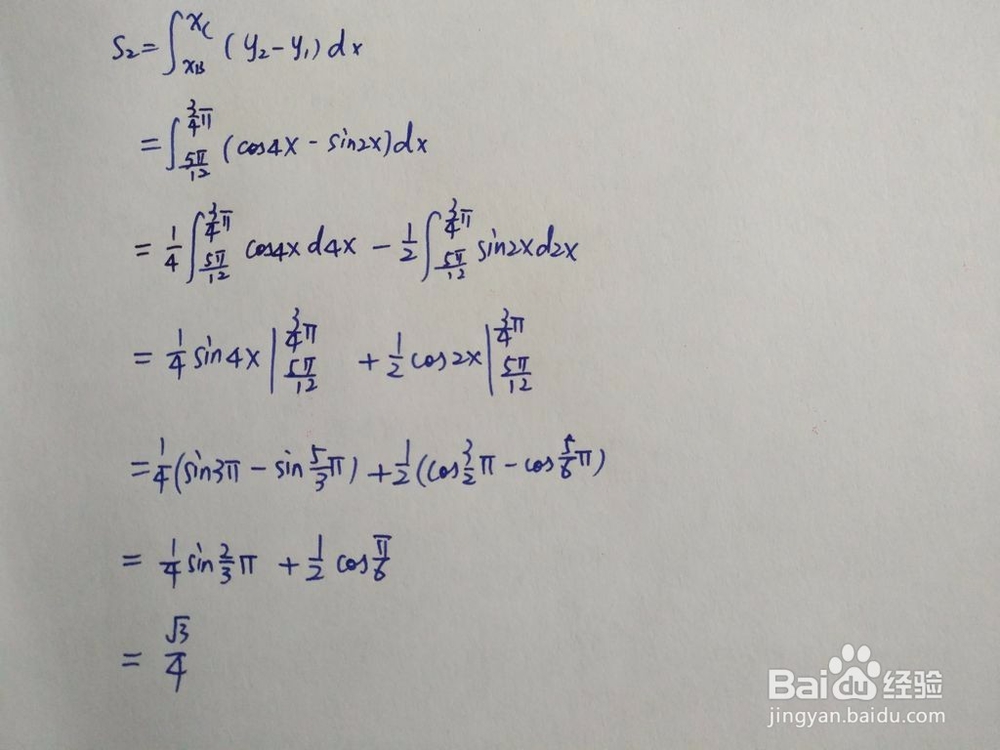 S₂=∫_{x_B}^{x_C} (y₂-y₁)dx
=∫_{5π/12}^{3/4 π} (cos4x - sin2x)dx
= 1/4 ∫_{5π/12}^{3/4 π} cos4x d4x - 1/2 ∫_{5π/12}^{3/4 π} sin2x d2x
= 1/4 sin4x |_{5π/12}^{3/4 π} + 1/2 cos2x |_{5π/12}^{3/4 π}
= 1/4 (sin3π - sin 5/3 π) + 1/2 (cos 3/2 π - cos 5/6 π)
= 1/4 sin 2/3 π + 1/2 cos π/6
= √3/4
Baidu经验
jingyan.baidu.com